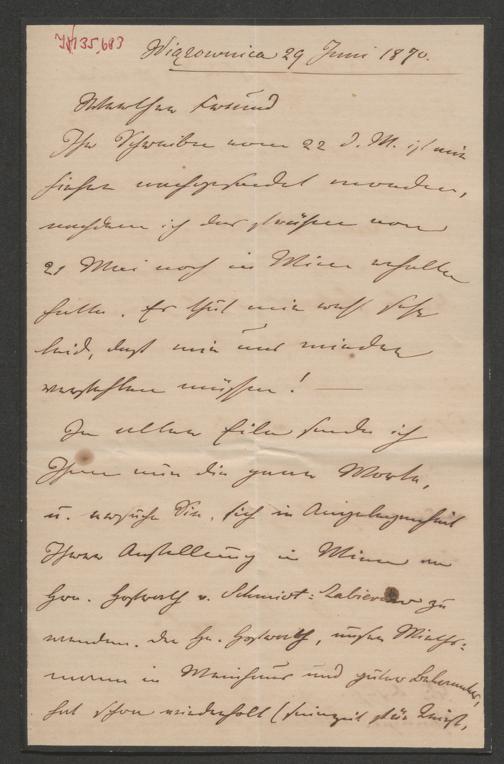 IN 135,683
Wiązownica 29 Juni 1870.
Werther Freund
Ihr Schreiben vom 22 d. M. ist mir
hieher nachgesendet worden,
nachdem ich das frühere vom
21 Mai noch in Wien erhalten
hatte. Es thut mir sehr
leid, daß wir uns wieder
verfehlen müssen! —
In aller Eile sende ich
Ihnen nur die paar Worte,
u. ersuche Sie, sich in Angelegenheit
Ihrer Anstellung in Wien an
Hrn. Hofrath v. Schmidt=Zabierow zu
wenden. Der Hr. Hofrath, unser Mieths=
mann in Weinhaus und guter Bekannter,
hat schon wiederholt (seinerzeit für